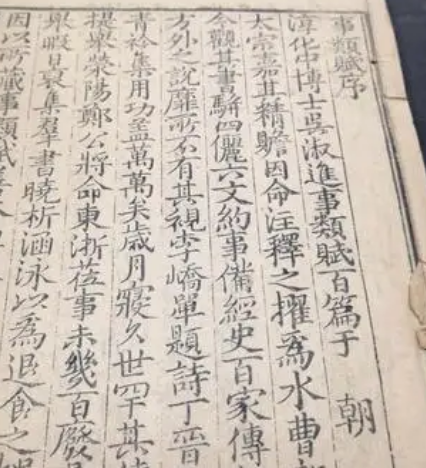 事類賦序
淳化中博士吳淑進事類賦百篇于 朝
太宗嘉其精贍因命注釋之擢爲水曹
今觀其書駢四儷六文約事備經史百家傳
方外之說靡所不有其視李嶠單題詩丁晉
青衿集用功盖萬萬矣歲月寢久世罕其
提舉滎陽鄭公將命東浙莅事未幾百廢
畢暇日裒集羣書曉析涵泳以爲退食之
因以所藏事類賦